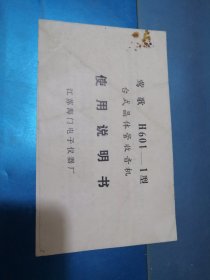 莺歌 H601—1型
台式晶体管收音机
使用说明书
江苏海门电子仪器厂